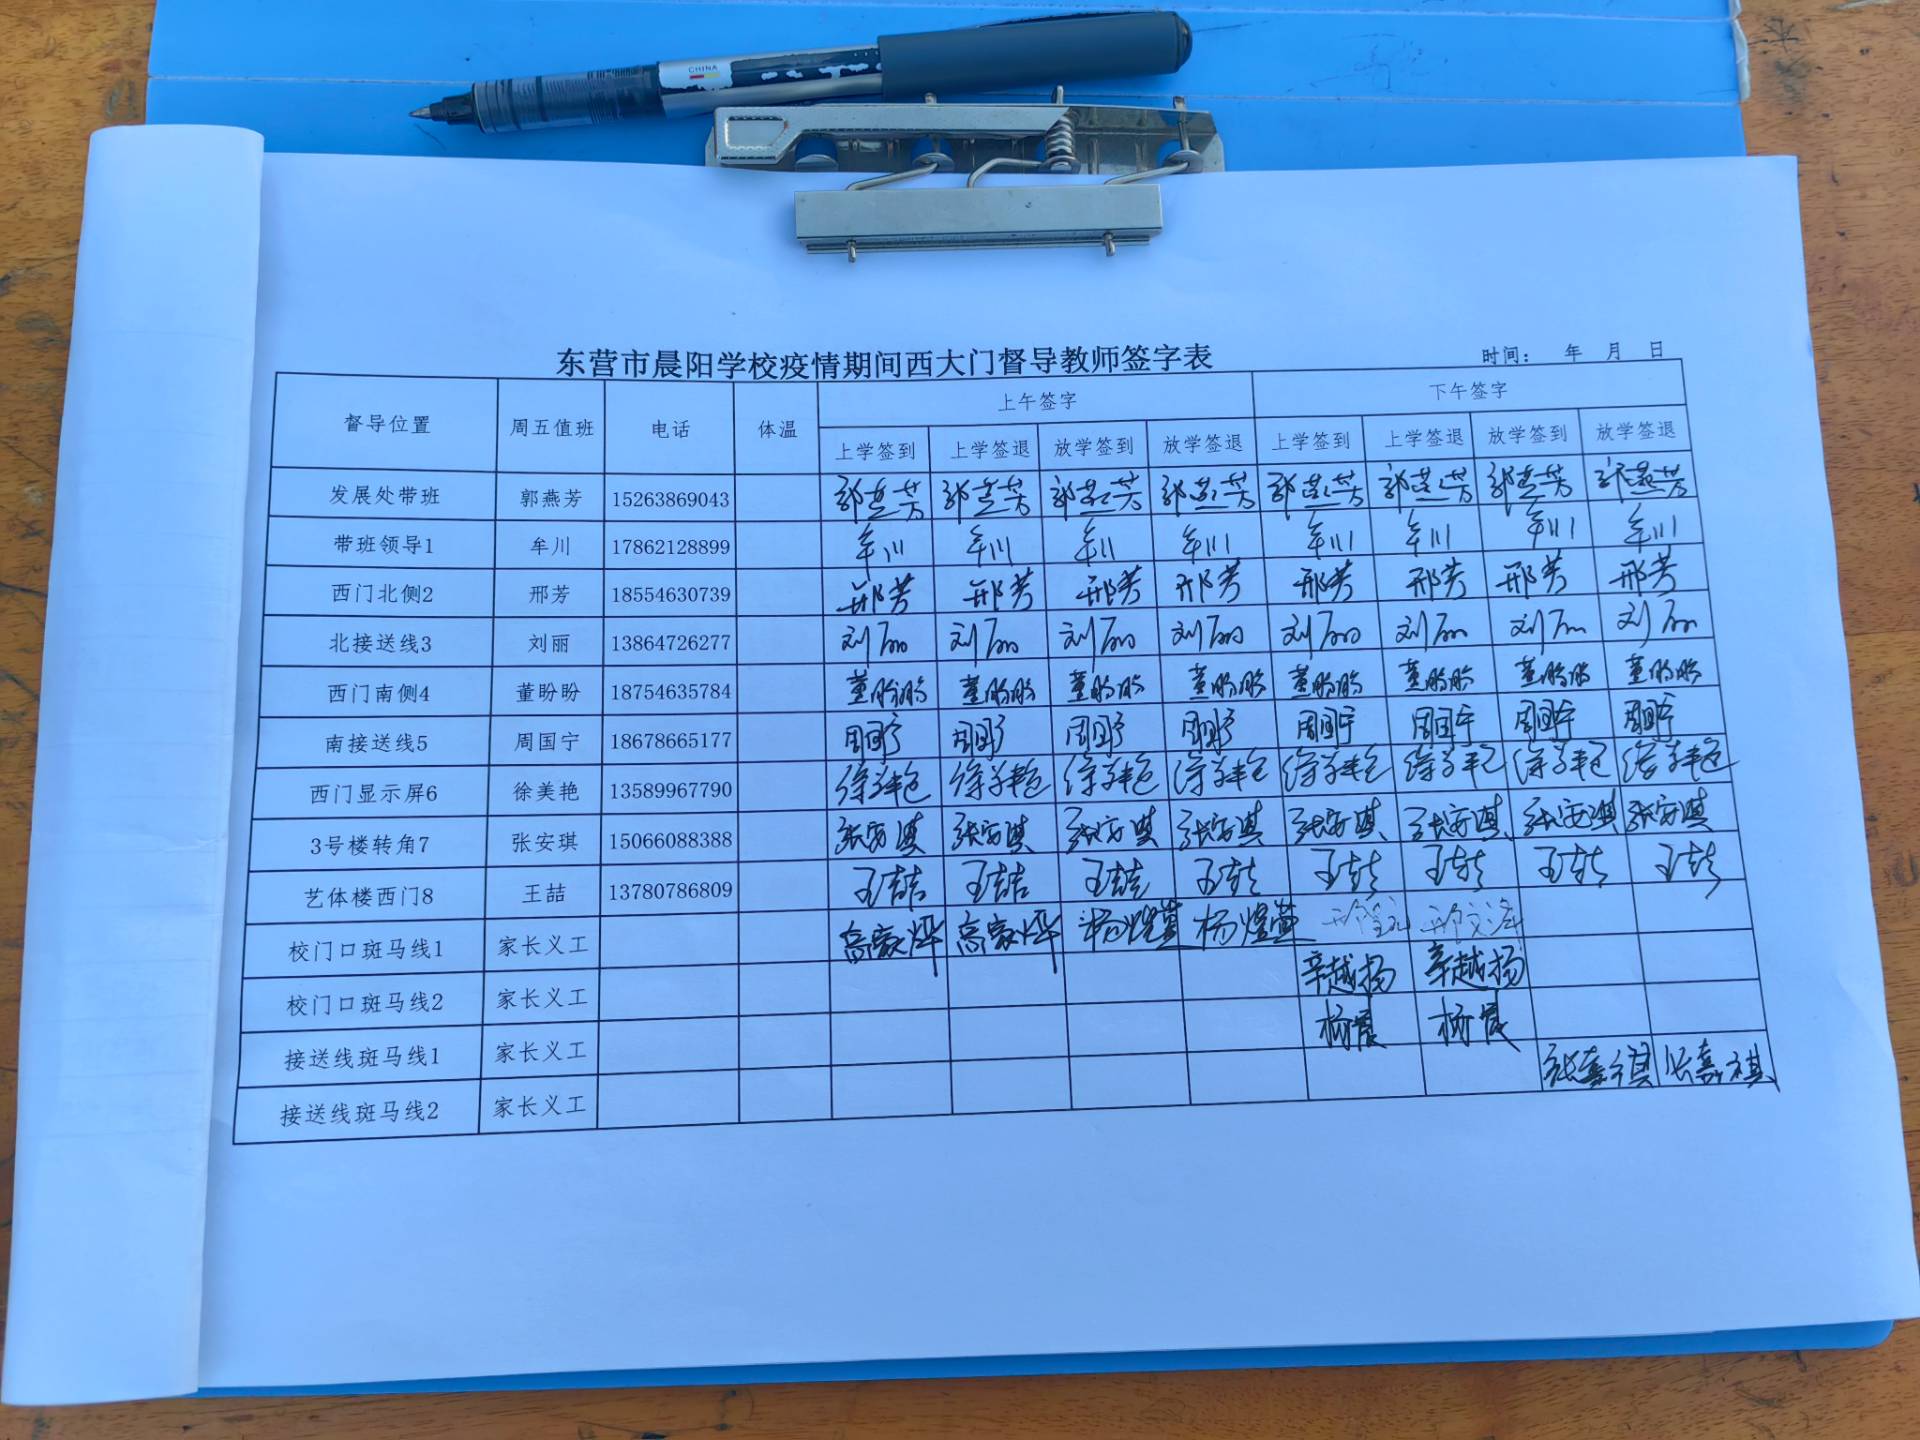 CHINA
东营市晨阳学校疫情期间西大门督导教师签字表 时间： 年 月 日
督导位置 周五值班 电话 体温 上午签字 下午签字
上学签到 上学签退 放学签到 放学签退 上学签到 上学签退 放学签到 放学签退
发展处带班 郭燕芳 15263869043 郭燕芳 郭燕芳 郭燕芳 郭燕芳 郭燕芳 郭燕芳 郭燕芳 郭燕芳
带班领导1 牟川 17862128899 牟川 牟川 牟川 牟川 牟川 牟川 牟川 牟川
西门北侧2 邢芳 18554630739 邢芳 邢芳 邢芳 邢芳 邢芳 邢芳 邢芳 邢芳
北接送线3 刘丽 13864726277 刘丽 刘丽 刘丽 刘丽 刘丽 刘丽 刘丽 刘丽
西门南侧4 董盼盼 18754635784 董盼盼 董盼盼 董盼盼 董盼盼 董盼盼 董盼盼 董盼盼 董盼盼
南接送线5 周国宁 18678665177 周国宁 周国宁 周国宁 周国宁 周国宁 周国宁 周国宁 周国宁
西门显示屏6 徐美艳 13589967790 徐美艳 徐美艳 徐美艳 徐美艳 徐美艳 徐美艳 徐美艳 徐美艳
3号楼转角7 张安琪 15066088388 张安琪 张安琪 张安琪 张安琪 张安琪 张安琪 张安琪 张安琪
艺体楼西门8 王喆 13780786809 王喆 王喆 王喆 王喆 王喆 王喆 王喆 王喆
校门口斑马线1 家长义工 高家烨 高家烨 杨煜萱 杨煜萱
校门口斑马线2 家长义工 辛越扬 辛越扬
接送线斑马线1 家长义工 杨晨 杨晨
接送线斑马线2 家长义工 张嘉祺 张嘉祺